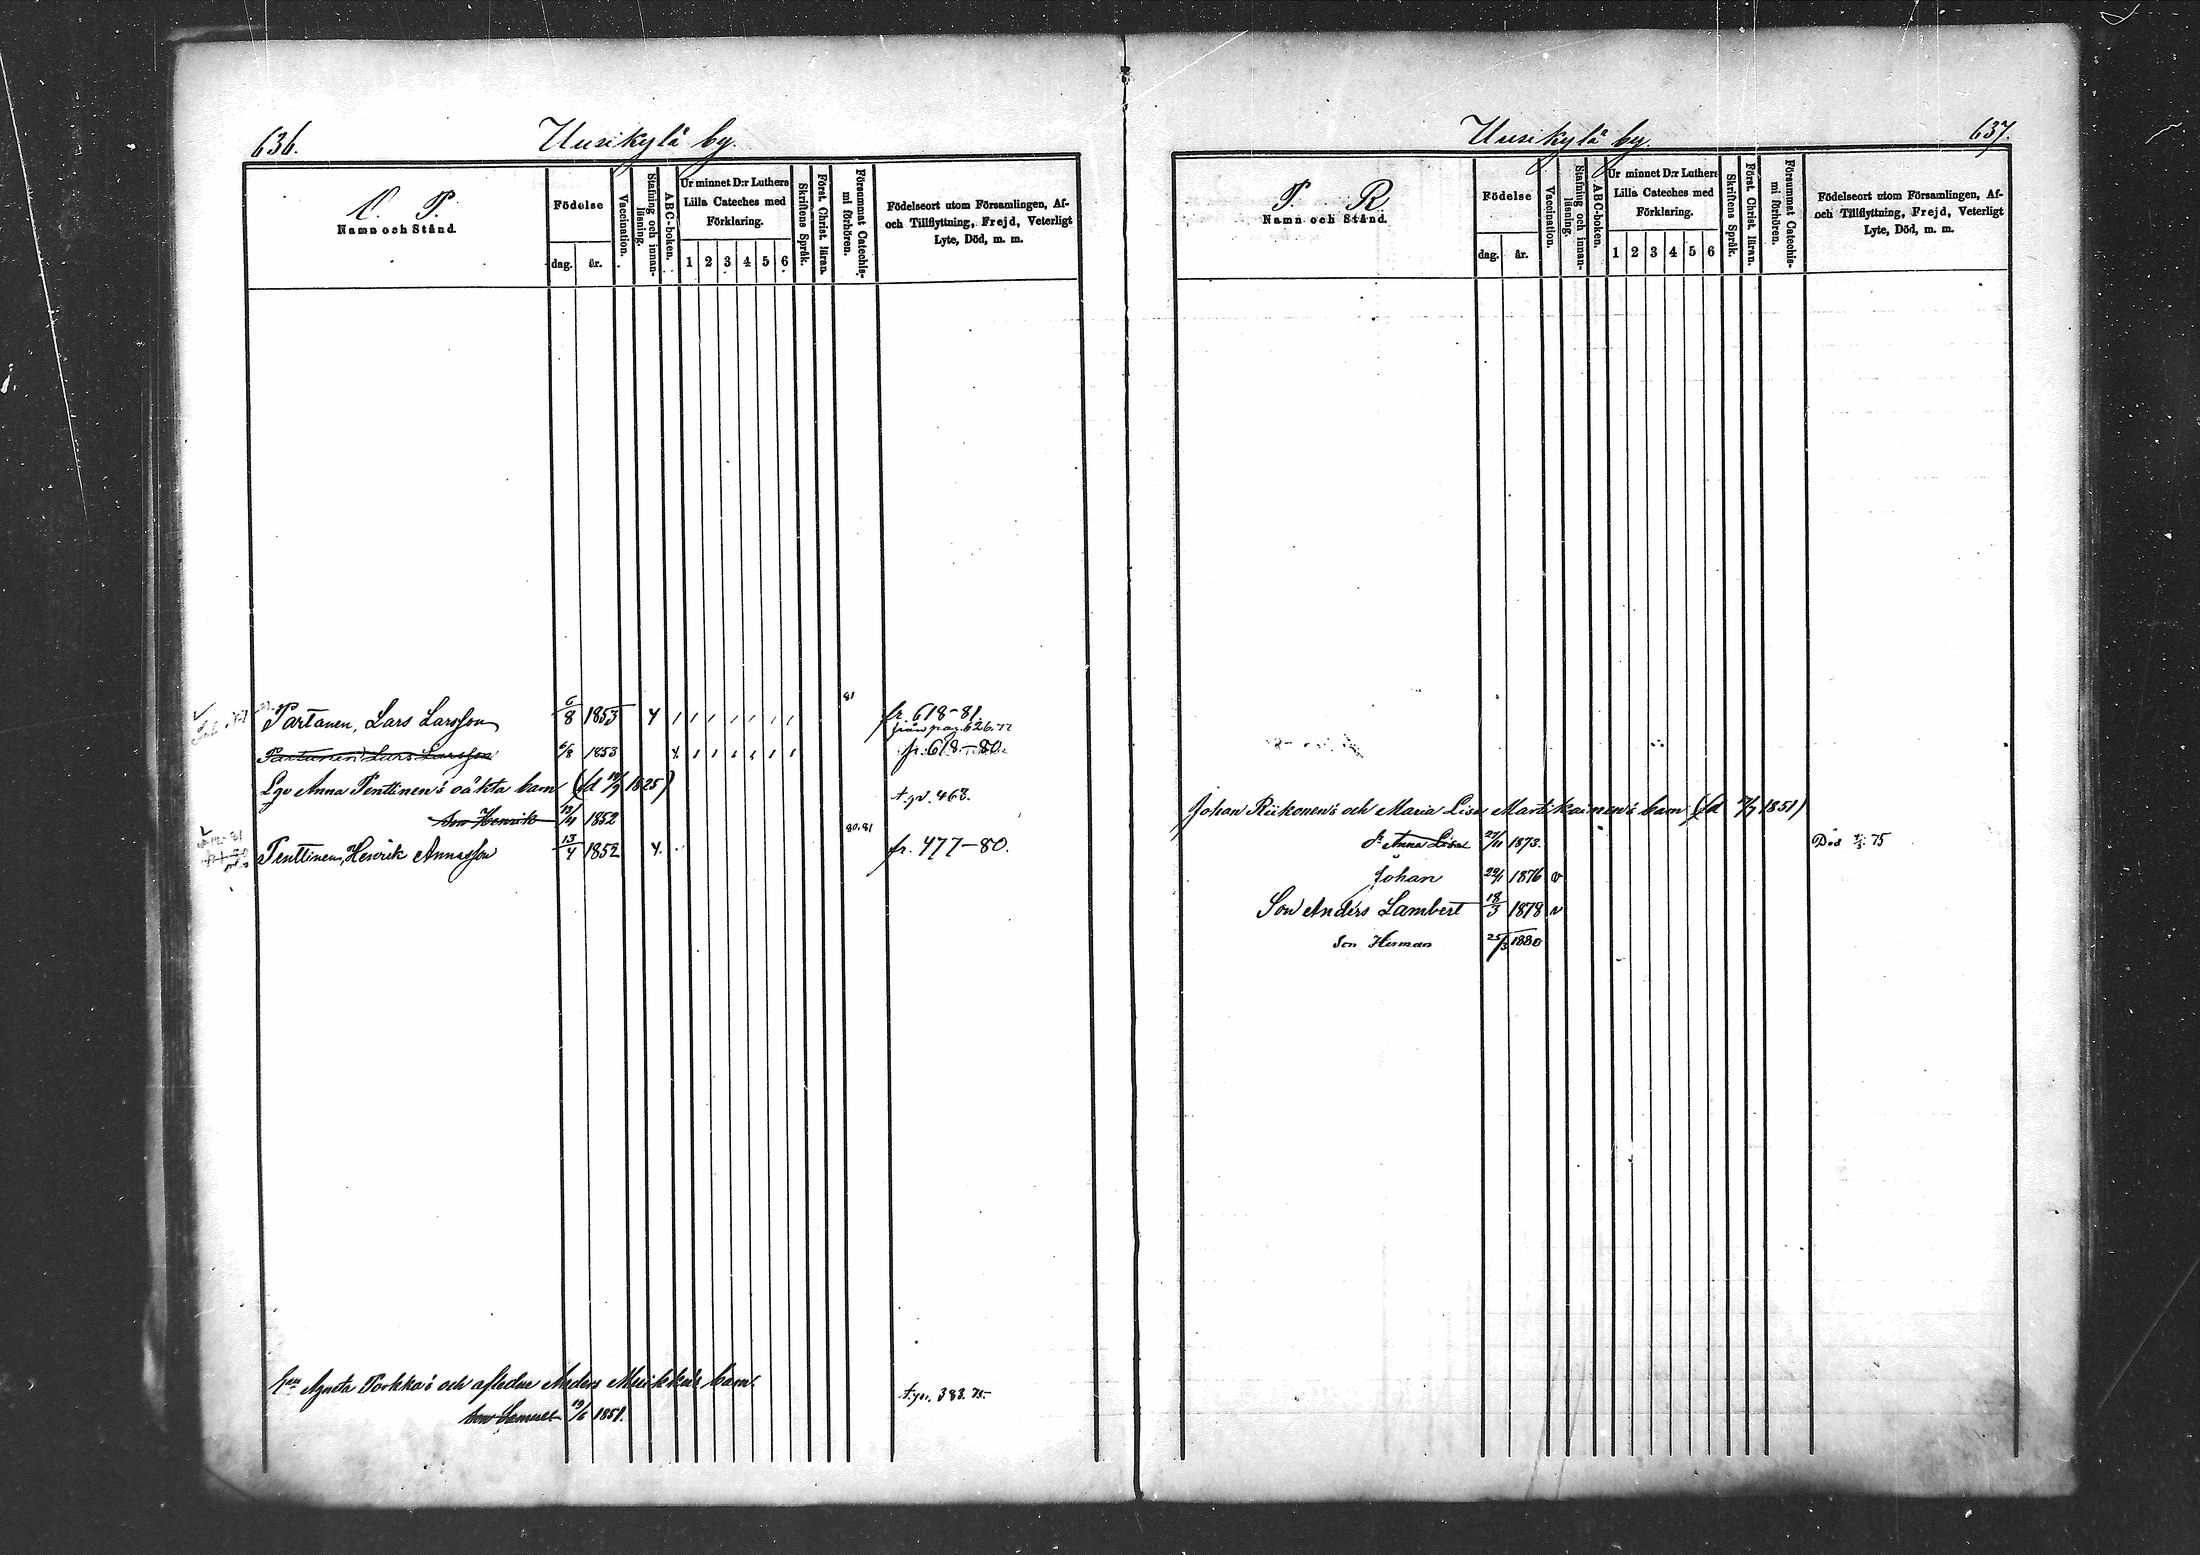 636.
Uusikylä by.
O. P.
Namn och Stånd.
Födelse
dag.
år.
Vaccination.
Stafning och innanläsning.
ABC-boken.
Ur minnet D:r Luthers
Lilla Cateches med
Förklaring.
1 2 3 4 5 6
Skriftens Språk.
Först. Christ. läran.
Försummat Catechismi förhören.
Födelseort utom Församlingen, Af-
och Tillflyttning, Frejd, Veterligt
Lyte, Död, m. m.
Partanen, Lars Larsson 6/8 1853 81 fr. 618-81.
från pag. 626.
Partanen Lars Larsson 6/8 1853 fr. 618-80.
Lgv Anna Penttinen's oäkta barn (fd 19/9 1825) t. gr. 468.
Son Henrik 13/4 1852
Penttinen, Henrik Annasson 13/4 1852 80.81 fr. 477-80.
Agneta Porkka's och afledne Anders Muikku's barn t. gr. 383. 75-
Son Samuel 19/6 1851.
637.
Uusikylä by.
P. R
Namn och Stånd.
Födelse
dag.
år.
Vaccination.
Stafning och innanläsning.
ABC-boken.
Ur minnet D:r Luthers
Lilla Cateches med
Förklaring.
1 2 3 4 5 6
Skriftens Språk.
Först. Christ. läran.
Försummat Catechismi förhören.
Födelseort utom Församlingen, Af-
och Tillflyttning, Frejd, Veterligt
Lyte, Död, m. m.
Johan Riikonen's och Maria Lisa Martikainen's barn (fd 1851)
d. Anna Lisa 27/11 1873. Död 75
Johan 29/1 1876 v
Son Anders Lambert 18/3 1878 v
Son Herman 25/3 1880